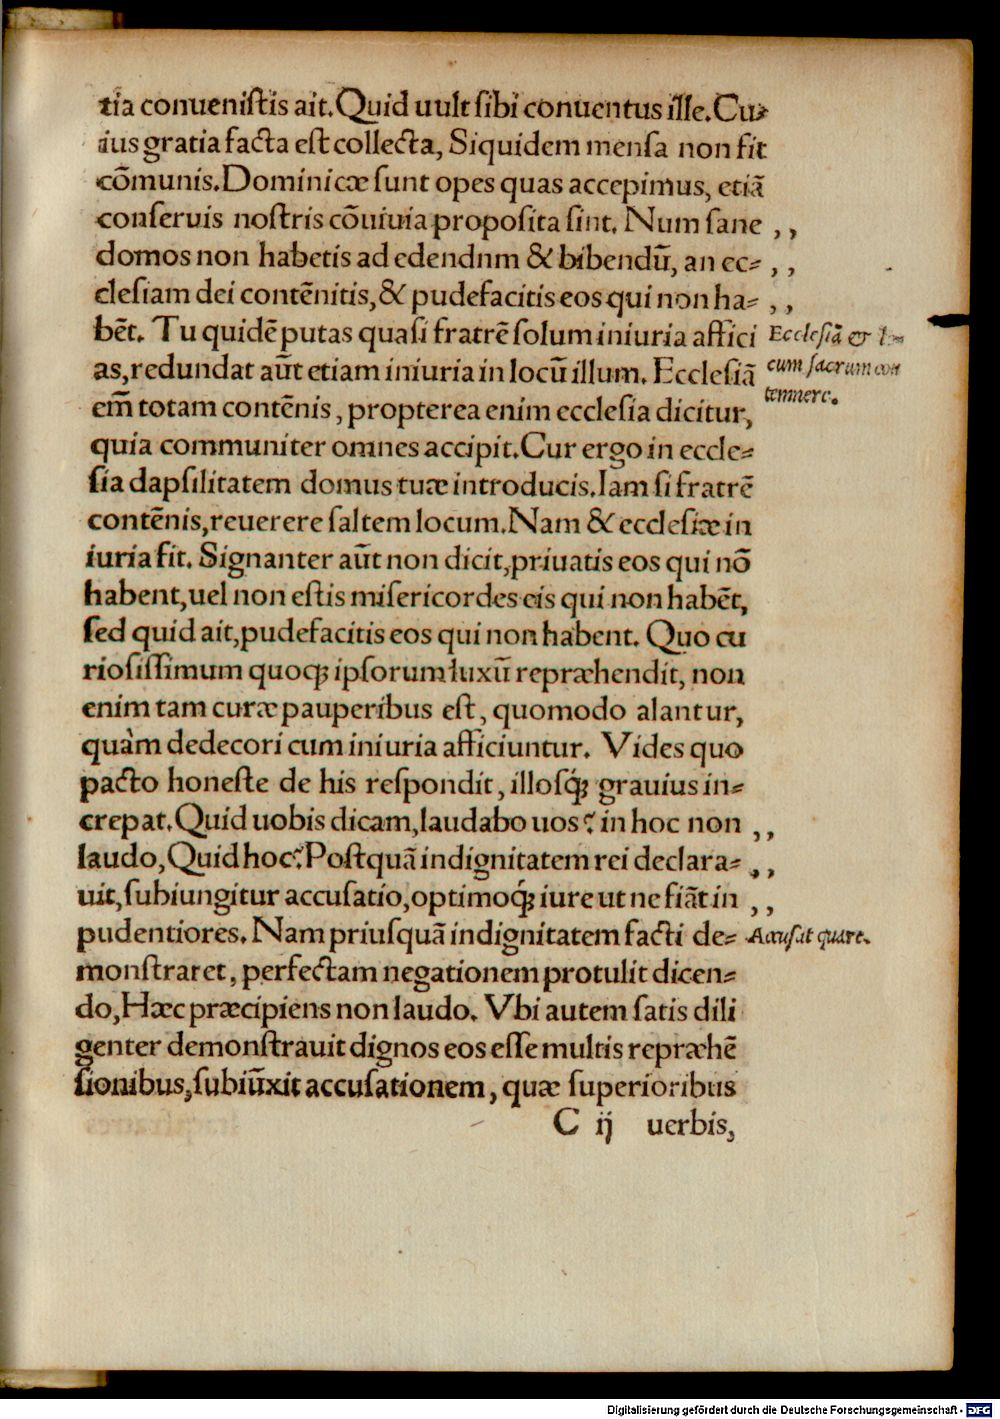 tia conuenistis ait. Quid uult sibi conuentus ille. Cu-
ius gratia facta est collecta, Siquidem mensa non fit
cōmunis. Dominicæ sunt opes quas accepimus, etiā
conseruis nostris cōuiuia proposita sint. Num sane ,,
domos non habetis ad edendnm & bibendū, an ec= ,,
clesiam dei contēnitis, & pudefacitis eos qui non ha= ,,
bēt. Tu quidē putas quasi fratrē solum iniuria affici
Ecclesiā et lo-
as, redundat aūt etiam iniuria in locū illum. Ecclesiā
cum sacrum con
em̄ totam contēnis, propterea enim ecclesia dicitur,
temnere.
quia communiter omnes accipit. Cur ergo in eccle=
sia dapsilitatem domus tuæ introducis. Iam si fratrē
contēnis, reuerere saltem locum. Nam & ecclesiæ in
iuria fit. Signanter aūt non dicit, priuatis eos qui nō
habent, uel non estis misericordes eis qui non habēt,
sed quid ait, pudefacitis eos qui non habent. Quo cu
riosissimum quoqꝫ ipsorum luxū repræhendit, non
enim tam curæ pauperibus est, quomodo alantur,
quàm dedecori cum iniuria afficiuntur. Vides quo
pacto honeste de his respondit, illosqꝫ́ grauius in=
crepat. Quid uobis dicam, laudabo uos? in hoc non ,,
laudo, Quid hoc? Postquā indignitatem rei declara= ,,
uit, subiungitur accusatio, optimoqꝫ́ iure ut ne fiāt in ,,
pudentiores. Nam priusquā indignitatem facti de=
Accusat quare.
monstraret, perfectam negationem protulit dicen=
do, Hæc præcipiens non laudo. Vbi autem satis dili
genter demonstrauit dignos eos esse multis repræhē
sionibus, subiūxit accusationem, quæ superioribus
C ij uerbis,
Digitalisierung gefördert durch die Deutsche Forschungsgemeinschaft - DFG